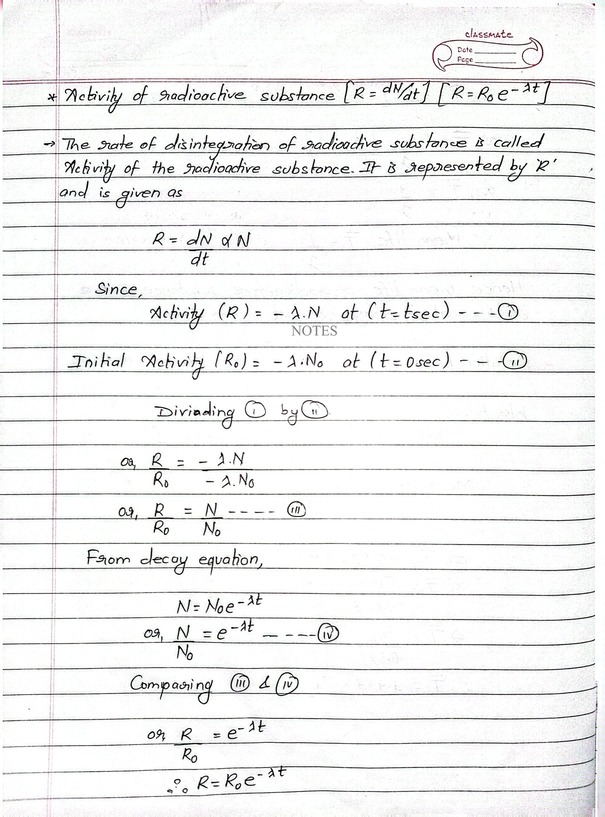 classmate
Date
Page
* Activity of radioactive substance [R = dN/dt] [R = R₀e^-λt]
→ The rate of disintegration of radioactive substance is called
Activity of the radioactive substance. It is represented by 'R'
and is given as
R = dN/dt ∝ N
Since,
Activity (R) = - λ.N at (t=tsec) - - - (i)
NOTES
Initial Activity (R₀) = - λ.N₀ at (t=0sec) - - - (ii)
Diviading (i) by (ii)
or, R/R₀ = - λ.N/- λ.N₀
or, R/R₀ = N/N₀ - - - - (iii)
From decay equation,
N = N₀e^-λt
or, N/N₀ = e^-λt - - - - (iv)
Comparing (iii) & (iv)
or R/R₀ = e^-λt
∴ R = R₀e^-λt